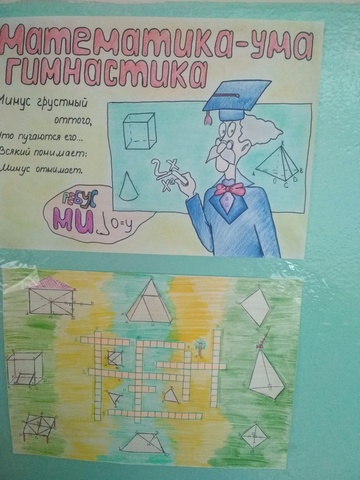 Математика-ума
гимнастика
Минус грустный
оттого,
Что пугаются его...
Всякий понимает:
Минус отнимает.
РЕБУС
МИ
О=У
A B C D